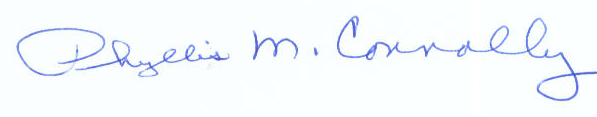 Phyllis M. Connolly